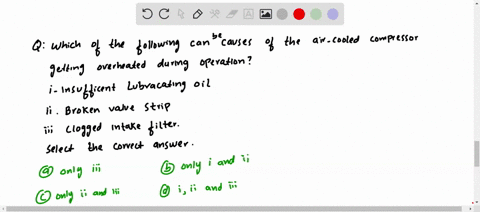 Q: which of the following can be causes of the air-cooled compressor
getting overheated during operation?
i- Insufficent Lubvacating oil
ii. Broken valve strip
iii clogged intake filter.
select the correct answer.
(a) only iii
(b) only i and ii
(c) only ii and iii
(d) i, ii and iii